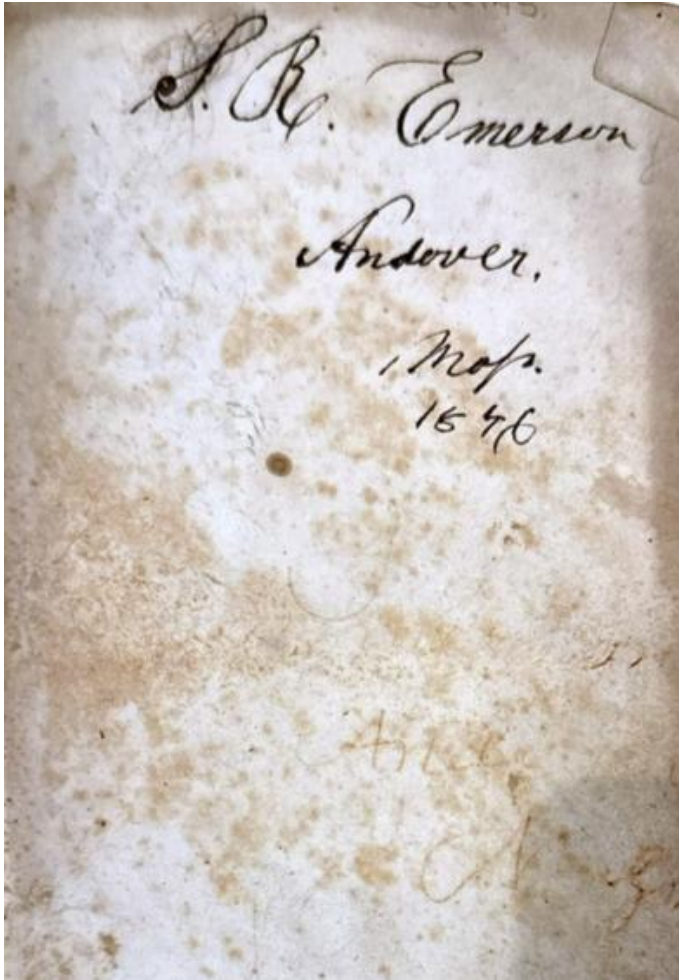 S. R. Emerson
Andover.
Mass.
1846